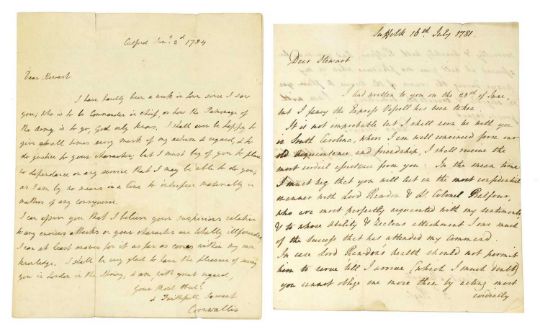 Culford Jan.y 2d 1784
Dear Stewart
I have hardly been a week in town since I saw
you, Who is to be Commander in chief, or how the Patronage of
the Army is to go, God only knows, I shall ever be happy to
give you all times every mark of my esteem & regard, & to
do justice to your character, but I must beg of you to place
no dependance on any service that I may be able to do you,
as I am by no means in a line to interfere materially in
matters of any consequence.
I can assure you that I believe your suspicions relative
to any envious attacks on your character are totally illfounded,
I can at least answer for it as far as comes within my own
knowledge. I shall be very glad to have the pleasure of seeing
you in London in the Spring, & am with great regard,
Yours Most Obed.t
& Faithfull Servant
Cornwallis
Suffolk 16th July 1781.
Dear Stewart
I had written to you on the 28th of June,
but I fancy the Express Vessell has been taken
It is not improbable but I shall soon be with you
in South Carolina, where I am well convinced from our
old acquaintance and friendship, I shall receive the
most cordial assistance from you. In the mean time
I must beg that you will act in the most confidential
manner with Lord Rawdon & Lt Colonel Balfour,
who are most perfectly acquainted with my sentiments
& to whose ability & zealous attachment I owe much
of the success that has attended my command.
In case Lord Rawdon's health should not permit
him to serve till I arrive (which I much doubt)
you cannot oblige me more than by acting most
cordially